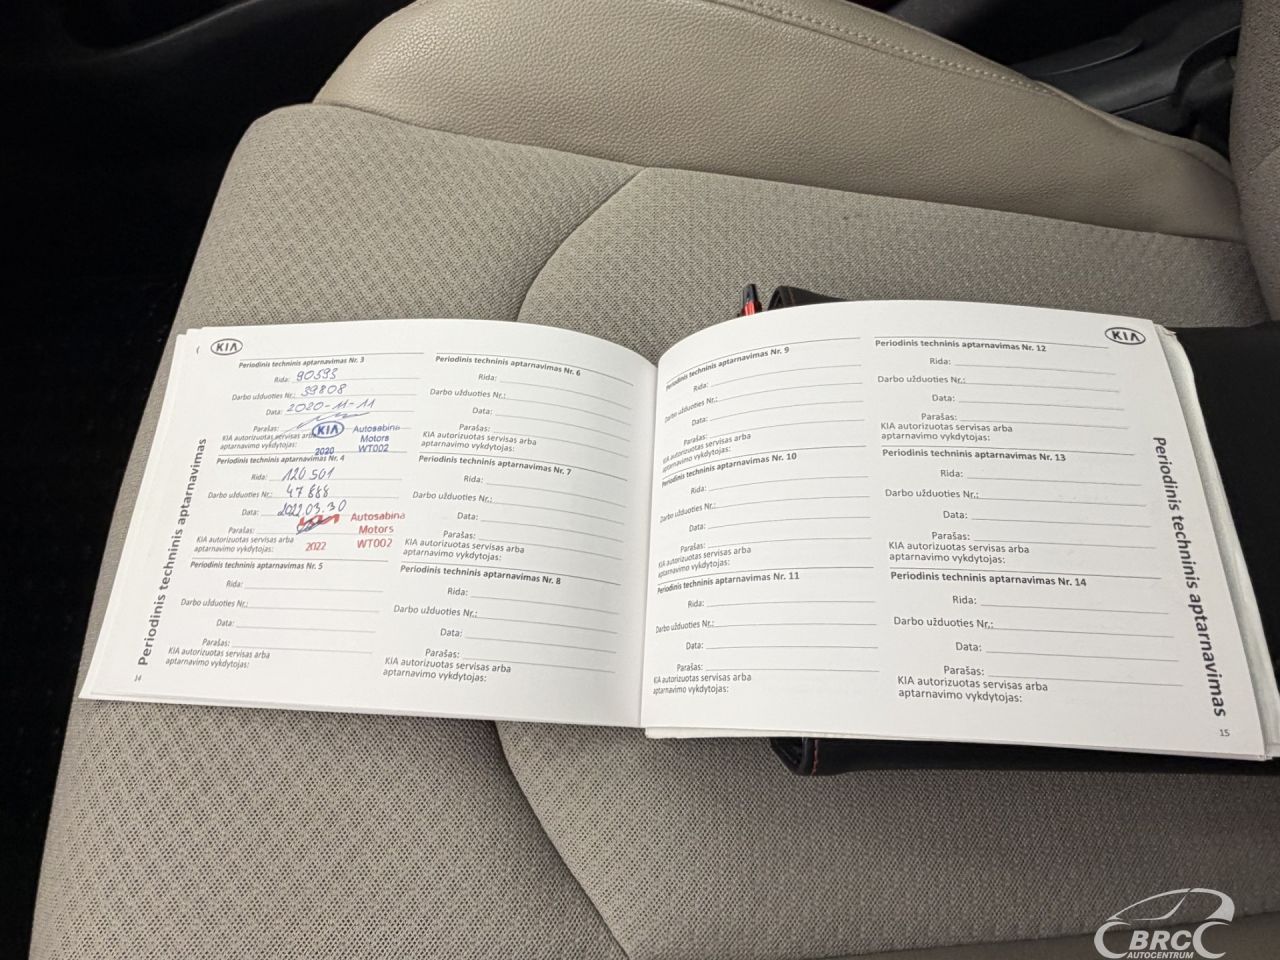 KIA
Periodinis techninis aptarnavimas Nr. 3
Rida: 90593
Darbo užduoties Nr.: 39808
Data: 2020-11-11
Parašas:
KIA autorizuotas servisas arba
aptarnavimo vykdytojas:
KIA
2020
Autosabina
Motors
WT002
Periodinis techninis aptarnavimas Nr. 4
Rida: 120 501
Darbo užduoties Nr.: 47 888
Data: 2022.03.30
Parašas:
KIA autorizuotas servisas arba
aptarnavimo vykdytojas:
2022
Autosabina
Motors
WT002
Periodinis techninis aptarnavimas Nr. 5
Rida:
Darbo užduoties Nr.:
Data:
Parašas:
KIA autorizuotas servisas arba
aptarnavimo vykdytojas:
14
Periodinis techninis aptarnavimas
Periodinis techninis aptarnavimas Nr. 6
Rida:
Darbo užduoties Nr.:
Data:
Parašas:
KIA autorizuotas servisas arba
aptarnavimo vykdytojas:
Periodinis techninis aptarnavimas Nr. 7
Rida:
Darbo užduoties Nr.:
Data:
Parašas:
KIA autorizuotas servisas arba
aptarnavimo vykdytojas:
Periodinis techninis aptarnavimas Nr. 8
Rida:
Darbo užduoties Nr.:
Data:
Parašas:
KIA autorizuotas servisas arba
aptarnavimo vykdytojas:
Periodinis techninis aptarnavimas Nr. 9
Rida:
Darbo užduoties Nr.:
Data:
Parašas:
KIA autorizuotas servisas arba
aptarnavimo vykdytojas:
Periodinis techninis aptarnavimas Nr. 10
Rida:
Darbo užduoties Nr.:
Data:
Parašas:
KIA autorizuotas servisas arba
aptarnavimo vykdytojas:
Periodinis techninis aptarnavimas Nr. 11
Rida:
Darbo užduoties Nr.:
Data:
Parašas:
KIA autorizuotas servisas arba
aptarnavimo vykdytojas:
KIA
Periodinis techninis aptarnavimas Nr. 12
Rida:
Darbo užduoties Nr.:
Data:
Parašas:
KIA autorizuotas servisas arba
aptarnavimo vykdytojas:
Periodinis techninis aptarnavimas Nr. 13
Rida:
Darbo užduoties Nr.:
Data:
Parašas:
KIA autorizuotas servisas arba
aptarnavimo vykdytojas:
Periodinis techninis aptarnavimas Nr. 14
Rida:
Darbo užduoties Nr.:
Data:
Parašas:
KIA autorizuotas servisas arba
aptarnavimo vykdytojas:
Periodinis techninis aptarnavimas
15
BRC
AUTOCENTRUM